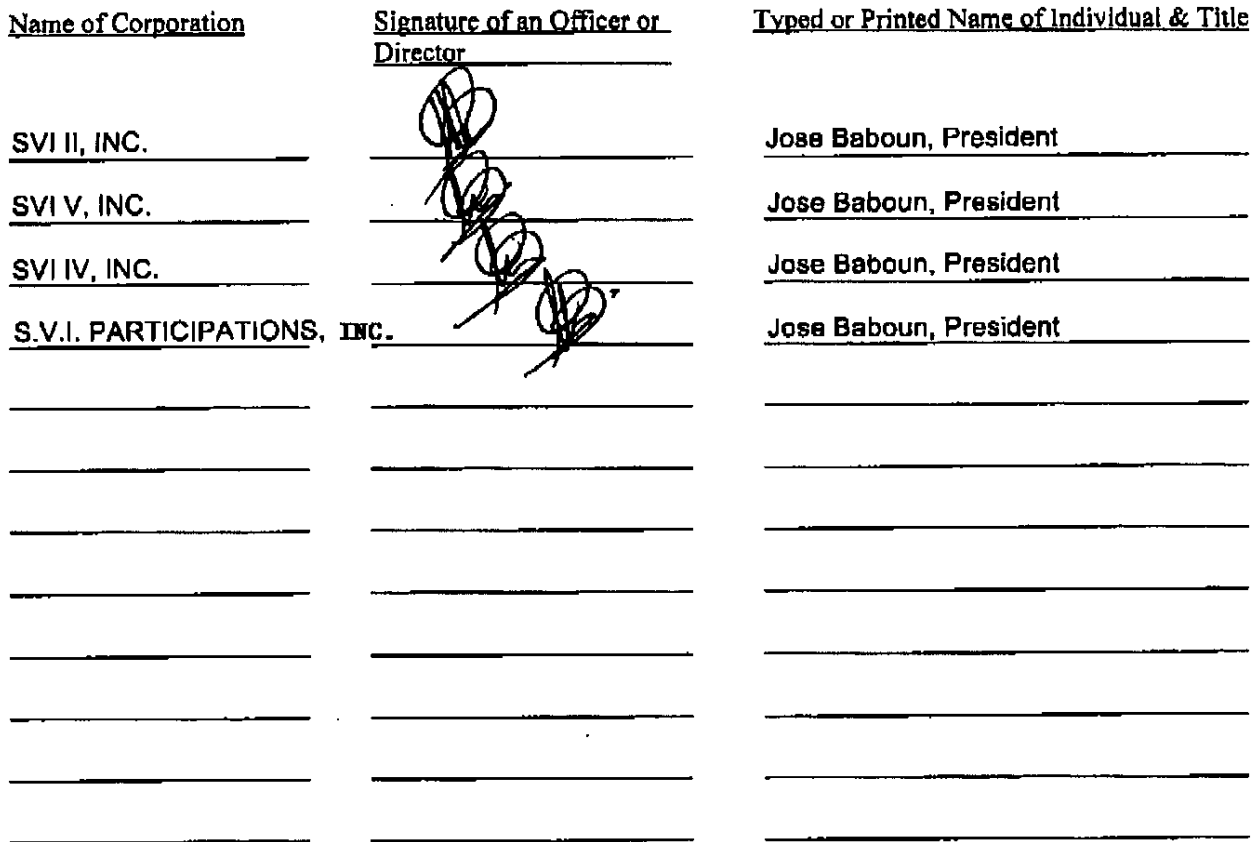 Name of Corporation Signature of an Officer or Typed or Printed Name of Individual & Title
Director
SVI II, INC. Jose Baboun, President
SVI V, INC. Jose Baboun, President
SVI IV, INC. Jose Baboun, President
S.V.I. PARTICIPATIONS, INC. Jose Baboun, President